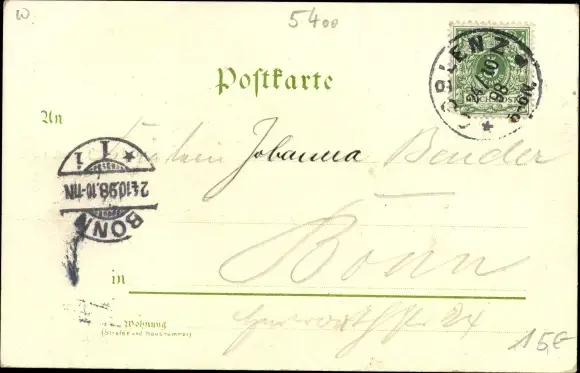 5400
COBLENZ
24/10
98
REICHSPOST
Postkarte
An
Fräulein Johanna Bender
1
i
24.10.98.10-11N
BONN
Bonn
in
Wohnung
(Straße und Hausnummer)
24
15,€